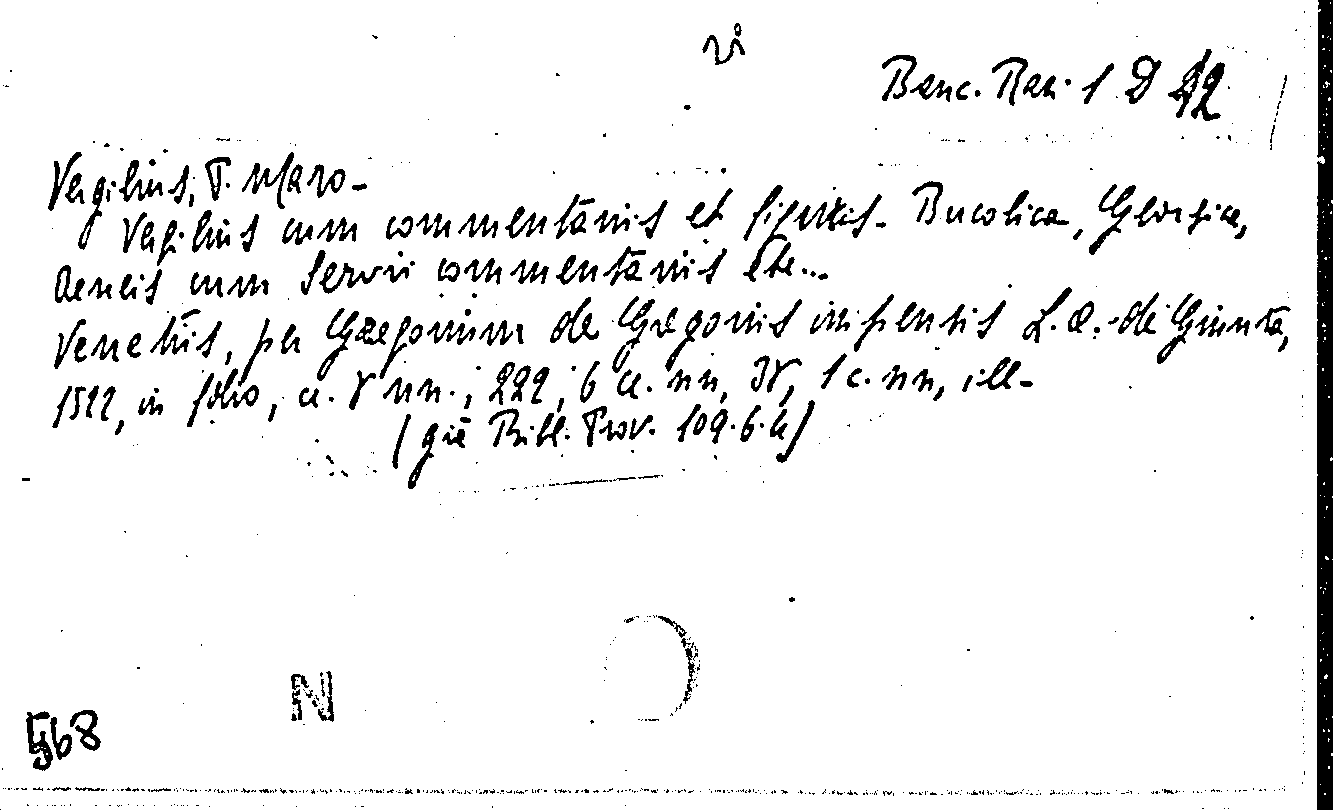 vi
Banc. Rari 1 D 42
Vergilius, P. Maro-
Vergilius cum commentariis et figuris. Bucolica, Georgica,
Aeneis cum Servii commentariis etc...
Venetiis, per Gregorium de Gregoriis impensis L. A. de Giunta,
1522, in folio, cc. V nn.; 222; 6 cc. nn, IV, 1 c. nn, ill-
(già Bibl. Prov. 109.6.4)
N
568